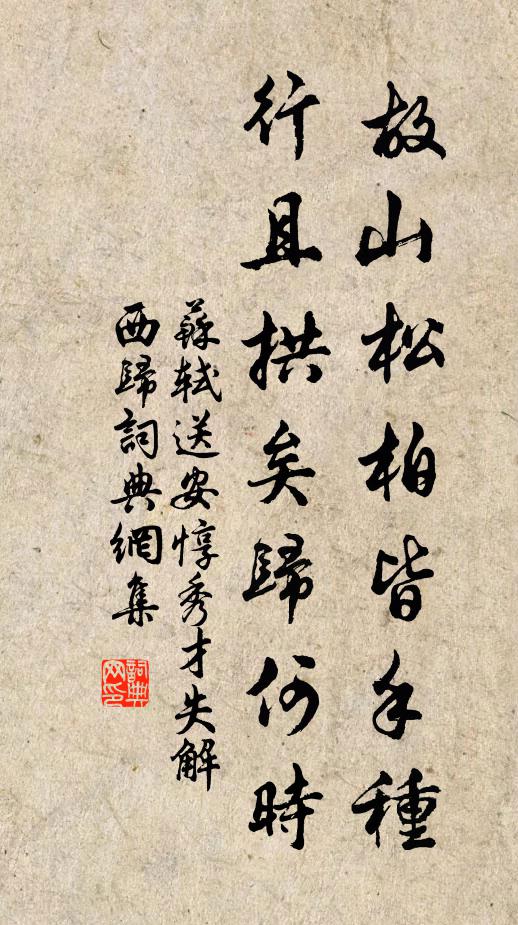 故山松柏皆手種
行且拱矣歸何時
蘇軾送安惇秀才失解
西歸詞典網集
詞典網印